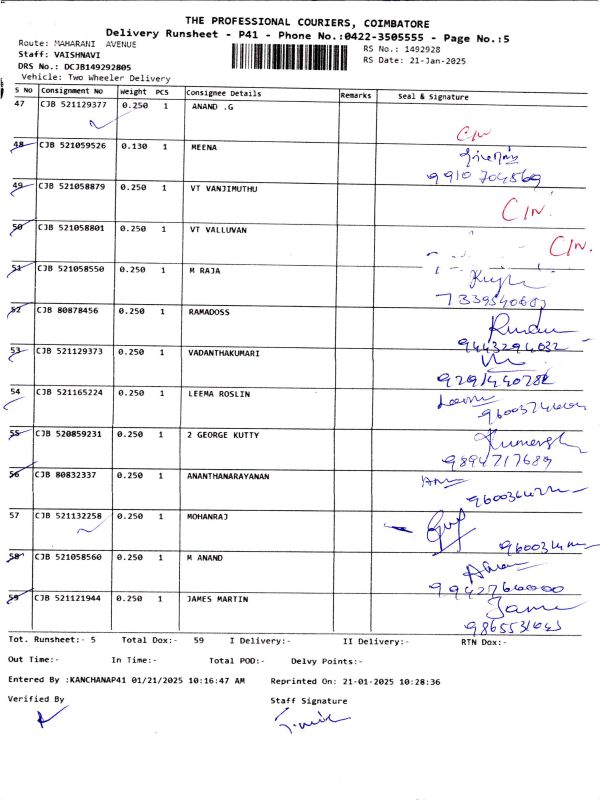 THE PROFESSIONAL COURIERS, COIMBATORE
Delivery Runsheet - P41 - Phone No.:0422-3505555 - Page No.:5
Route: MAHARANI AVENUE
RS No.: 1492928
Staff: VAISHNAVI
RS Date: 21-Jan-2025
DRS No.: DCJB149292805
Vehicle: Two Wheeler Delivery
S No Consignment No Weight PCS Consignee Details Remarks Seal & Signature
47 CJB 521129377 0.250 1 ANAND .G
C/N
48 CJB 521059526 0.130 1 MEENA
9910 704569
49 CJB 521058879 0.250 1 VT VANJIMUTHU
C/N.
50 CJB 521058801 0.250 1 VT VALLUVAN
C/N.
51 CJB 521058550 0.250 1 M RAJA
52 CJB 80878456 0.250 1 RAMADOSS
9443294032
53 CJB 521129373 0.250 1 VADANTHAKUMARI
54 CJB 521165224 0.250 1 LEEMA ROSLIN
55 CJB 520859231 0.250 1 2 GEORGE KUTTY
9894717689
56 CJB 80832337 0.250 1 ANANTHANARAYANAN
57 CJB 521132258 0.250 1 MOHANRAJ
58 CJB 521058560 0.250 1 M ANAND
9942766000
59 CJB 521121944 0.250 1 JAMES MARTIN
Tot. Runsheet:- 5 Total Dox:- 59 I Delivery:- II Delivery:- RTN Dox:-
Out Time:- In Time:- Total POD:- Delvy Points:-
Entered By :KANCHANAP41 01/21/2025 10:16:47 AM Reprinted On: 21-01-2025 10:28:36
Verified By Staff Signature